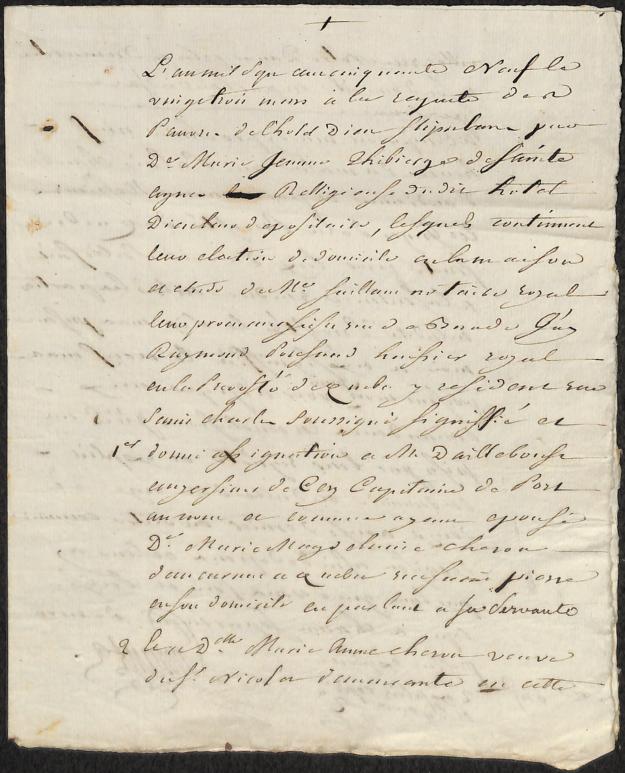 L'an mil Sept cent cinquante Neuf le
vingt trois mars à la requete des
Pauvres de l'hotel Dieu stipulant par
De. Marie Jeanne Thibierge de Sainte
agnes Relligieuse dudit hotel
Dieu leur depositaire, lesquels continuent
leur election de domicile en la maison
et etude de Me. saillant notaire royal
leur procureur sise rue de Buade J'ay
Raymond huissier royal
en la Prevosté de quebec y resident rue
Saint charles soussigné signiffié et
1er donné assignation a Mr. Dailleboust
de Cery Capitaine de Port
au nom et comme ayant epousé
De. Marie Magdelaine cheron
demeurant a quebec rue saint pierre
en son domicile en parlant a sa servante
2 et a delle Marie Anne cheron veuve
du Sr. Nicolas demeurante en cette